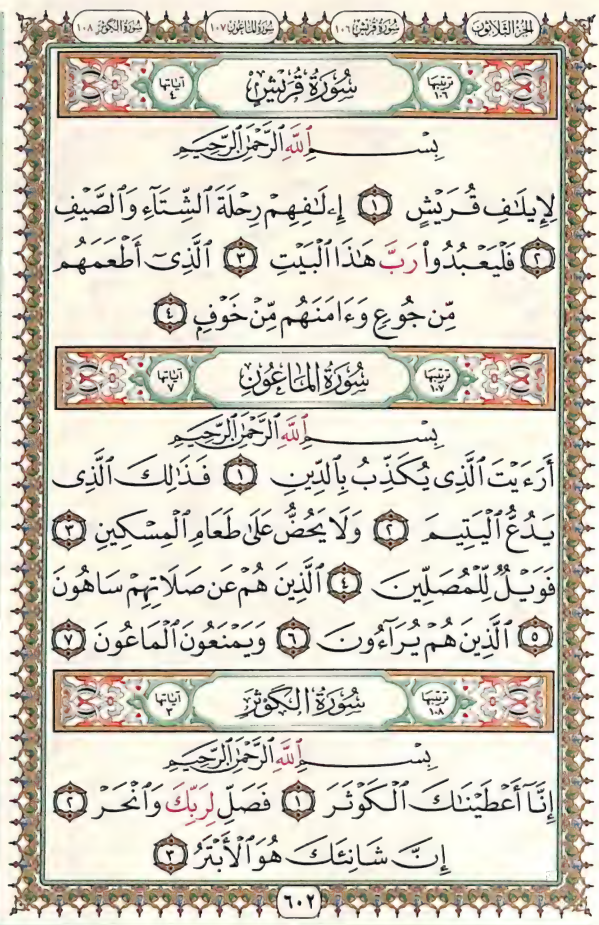 الجزء الثلاثون سورة قريش ١٠٦ سورة الماعون ١٠٧ سورة الكوثر ١٠٨
ترتيبها ١٠٦ سُورَةُ قُرَيْشٍ آياتها ٤
بِسْمِ ٱللَّهِ ٱلرَّحْمَٰنِ ٱلرَّحِيمِ
لِإِيلَٰفِ قُرَيْشٍ ١ إِۦلَٰفِهِمْ رِحْلَةَ ٱلشِّتَآءِ وَٱلصَّيْفِ
٢ فَلْيَعْبُدُوا۟ رَبَّ هَٰذَا ٱلْبَيْتِ ٣ ٱلَّذِىٓ أَطْعَمَهُم
مِّن جُوعٍ وَءَامَنَهُم مِّنْ خَوْفٍۭ ٤
ترتيبها ١٠٧ سُورَةُ المَاعُونِ آياتها ٧
بِسْمِ ٱللَّهِ ٱلرَّحْمَٰنِ ٱلرَّحِيمِ
أَرَءَيْتَ ٱلَّذِى يُكَذِّبُ بِٱلدِّينِ ١ فَذَٰلِكَ ٱلَّذِى
يَدُعُّ ٱلْيَتِيمَ ٢ وَلَا يَحُضُّ عَلَىٰ طَعَامِ ٱلْمِسْكِينِ ٣
فَوَيْلٌ لِّلْمُصَلِّينَ ٤ ٱلَّذِينَ هُمْ عَن صَلَاتِهِمْ سَاهُونَ
٥ ٱلَّذِينَ هُمْ يُرَآءُونَ ٦ وَيَمْنَعُونَ ٱلْمَاعُونَ ٧
ترتيبها ١٠٨ سُورَةُ الكَوْثَرِ آياتها ٣
بِسْمِ ٱللَّهِ ٱلرَّحْمَٰنِ ٱلرَّحِيمِ
إِنَّآ أَعْطَيْنَٰكَ ٱلْكَوْثَرَ ١ فَصَلِّ لِرَبِّكَ وَٱنْحَرْ ٢
إِنَّ شَانِئَكَ هُوَ ٱلْأَبْتَرُ ٣
٦٠٢